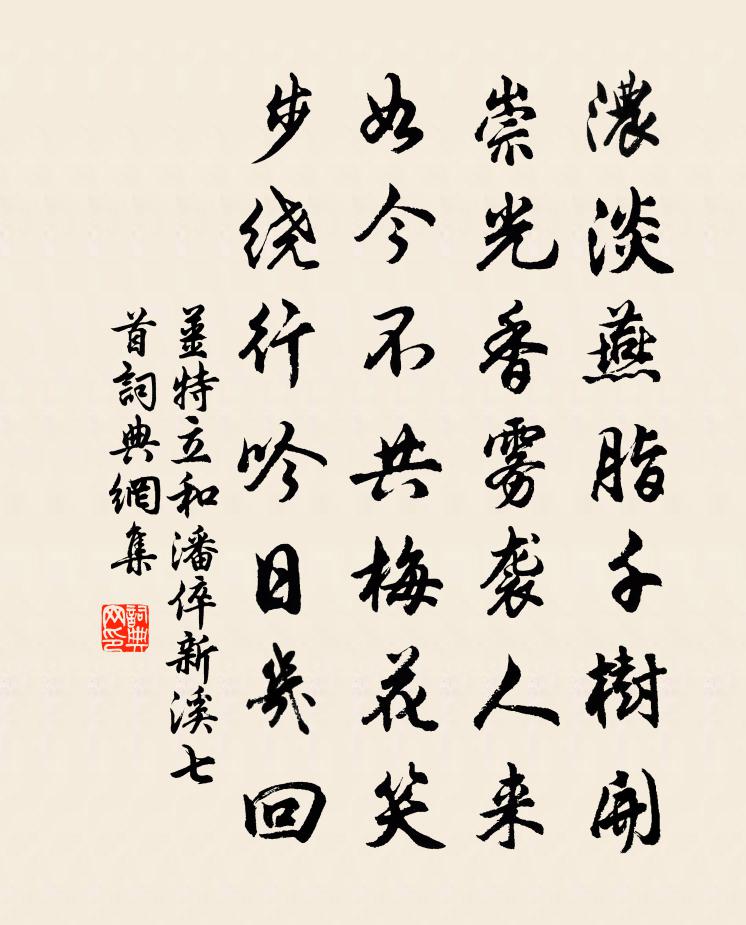 濃淡燕脂千樹開
崇光香雾袭人来
如今不共梅花笑
步绕行吟日幾回
姜特立和潘倅新溪七
首詞典網集
詞典网印